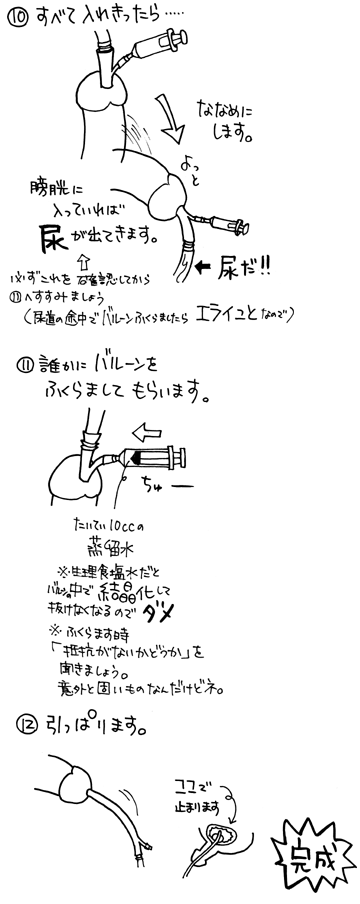 ⑩ すべて入れきったら……
ななめに
します。
よっと
膀胱に
入っていれば
尿が出てきます。
← 尿だ!!
必ずこれを確認してから
⑪へすすみましょう
(尿道の途中でバルーンふくらましたら エライコとなので)
⑪ 誰かにバルーンを
ふくらまして もらいます。
ちゅー
たいてい10ccの
蒸留水
※生理食塩水だと
バルーン中で結晶化して
抜けなくなるので ダメ
※ ふくらます時
「抵抗がないかどうか」を
聞きましょう。
意外と固いものなんだけどネ。
⑫ 引っぱります。
ココで
止まります
完成